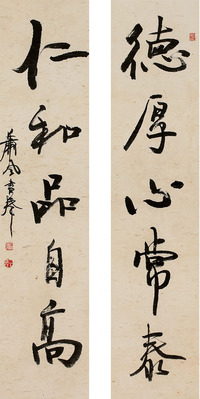 德厚心常泰
仁和品自高